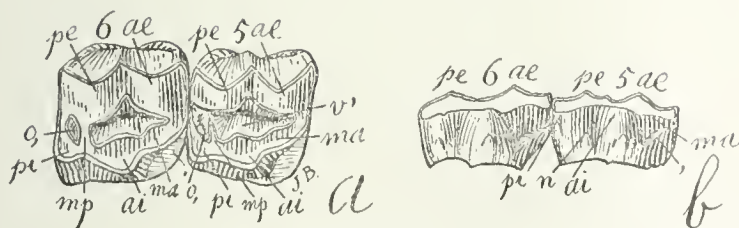 pe 6 ae pe 5 ae
v'
o, ma
pi
mp ai ma' o, pi mp ai J.B. a
pe 6 ae pe 5 ae
ma
pi n ai ,
b